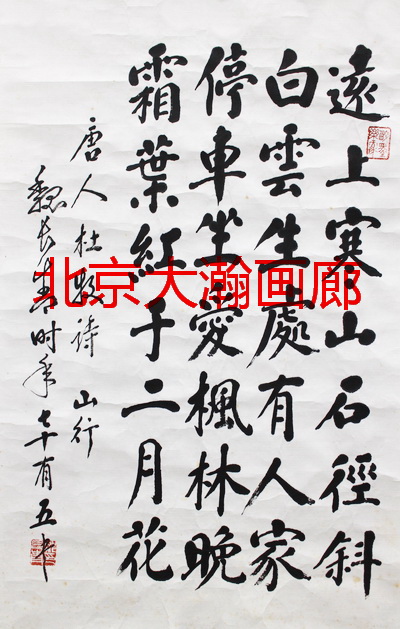 遠上寒山石徑斜
白雲生處有人家
停車坐愛楓林晚
霜葉紅于二月花
唐人杜牧诗 山行
魏长青时年七十有五
北京大瀚画廊